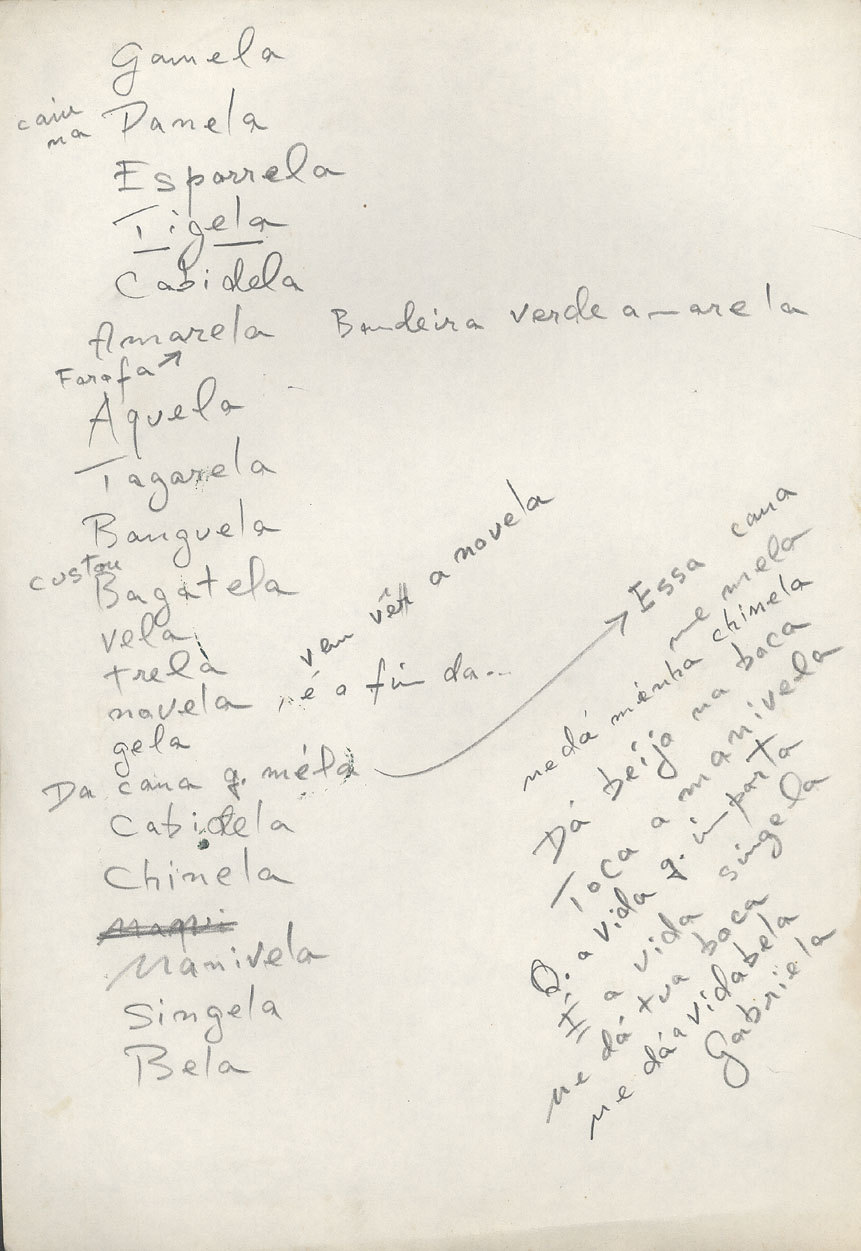 Gamela
caiu
na Panela
Esparrela
Tigela
Cabidela
Amarela Bandeira verde amarela
Farofa
Aquela
Tagarela
Banguela
custou
Bagatela
vela
trela
novela, é o fim da...
vem vêr a novela
gela
Da cana q. méla
Cabidela
Chinela
Manivela
Singela
Bela
Essa cana
me mela
me dá minha chinela
Dá beijo na boca
Toca a manivela
Q. a vida q. importa
É a vida singela
me dá tua boca
me dá a vida bela
Gabriela